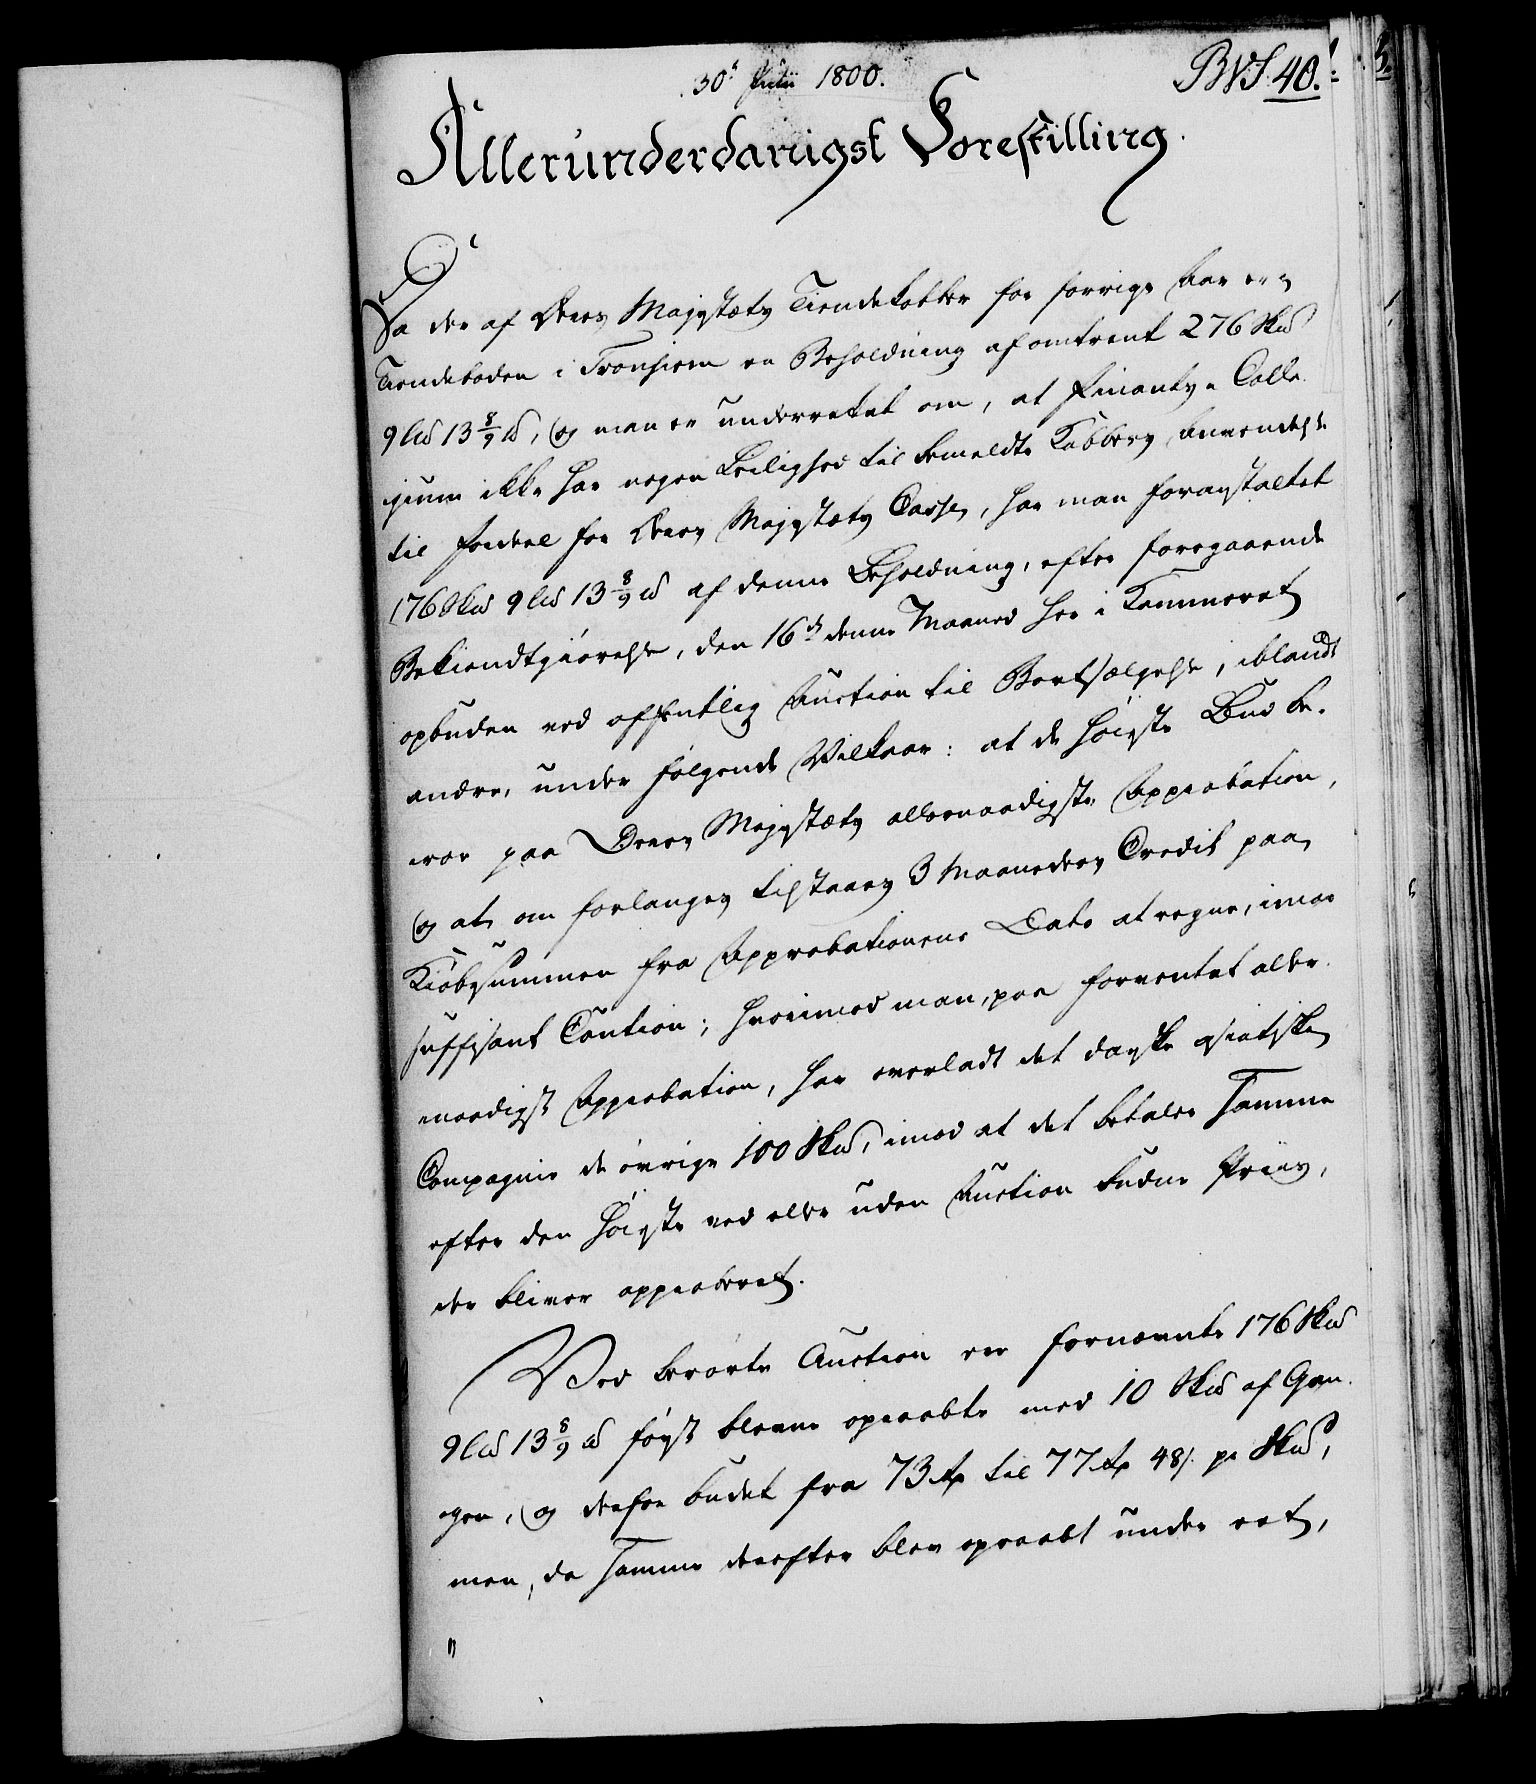 30te Julii 1800.
BVS. 40.
Allerunderdanigst Forestilling.
Da der af Deres Majestæts Tiendekobber for forrige Aar er i
Tiendeboden i Tronhiem en Beholdning af omtrent 276 Sk℔
9 L℔ 13 8/9 ℔, og man er underrettet om, at Finants-Colle-
gium ikke har nogen Leilighed til bemeldte Kobbers Anvendelse
til Fordeel for Deres Majestæts Casse, har man foranstaltet
176 Sk℔ 9 L℔ 13 8/9 ℔ af denne Beholdning, efter foregaaende
Bekiendtgiørelse, den 16de denne Maaned her i Kammeret
opbuden ved offentlig Auction til Bortsælgelse, iblandt
andre, under følgende Vilkaar: at de høieste Bud be-
roer paa Deres Majestæts allernaadigste Approbation,
og at, om forlanges tilstaaes 3 Maaneders Credit paa
Kiøbesummen fra Approbationens Dato at regne, imod
suffisant Caution; hvorimod man, paa forventet aller-
naadigst Approbation, har overladt det danske asiatiske
Compagnie de øvrige 100 Sk℔, imod at det betaler samme
efter den høieste ved eller uden Auction budne Priis,
der bliver approberet.
Ved berørte Auction ere fornævnte 176 Sk℔
9 L℔ 13 8/9 ℔ først blevne opraabte med 10 Sk℔ af Gan-
gen, og derfor budet fra 73 Rdr til 77 Rdr 48 s. pr Sk℔,
men, da samme derefter blev opraabt under eet,